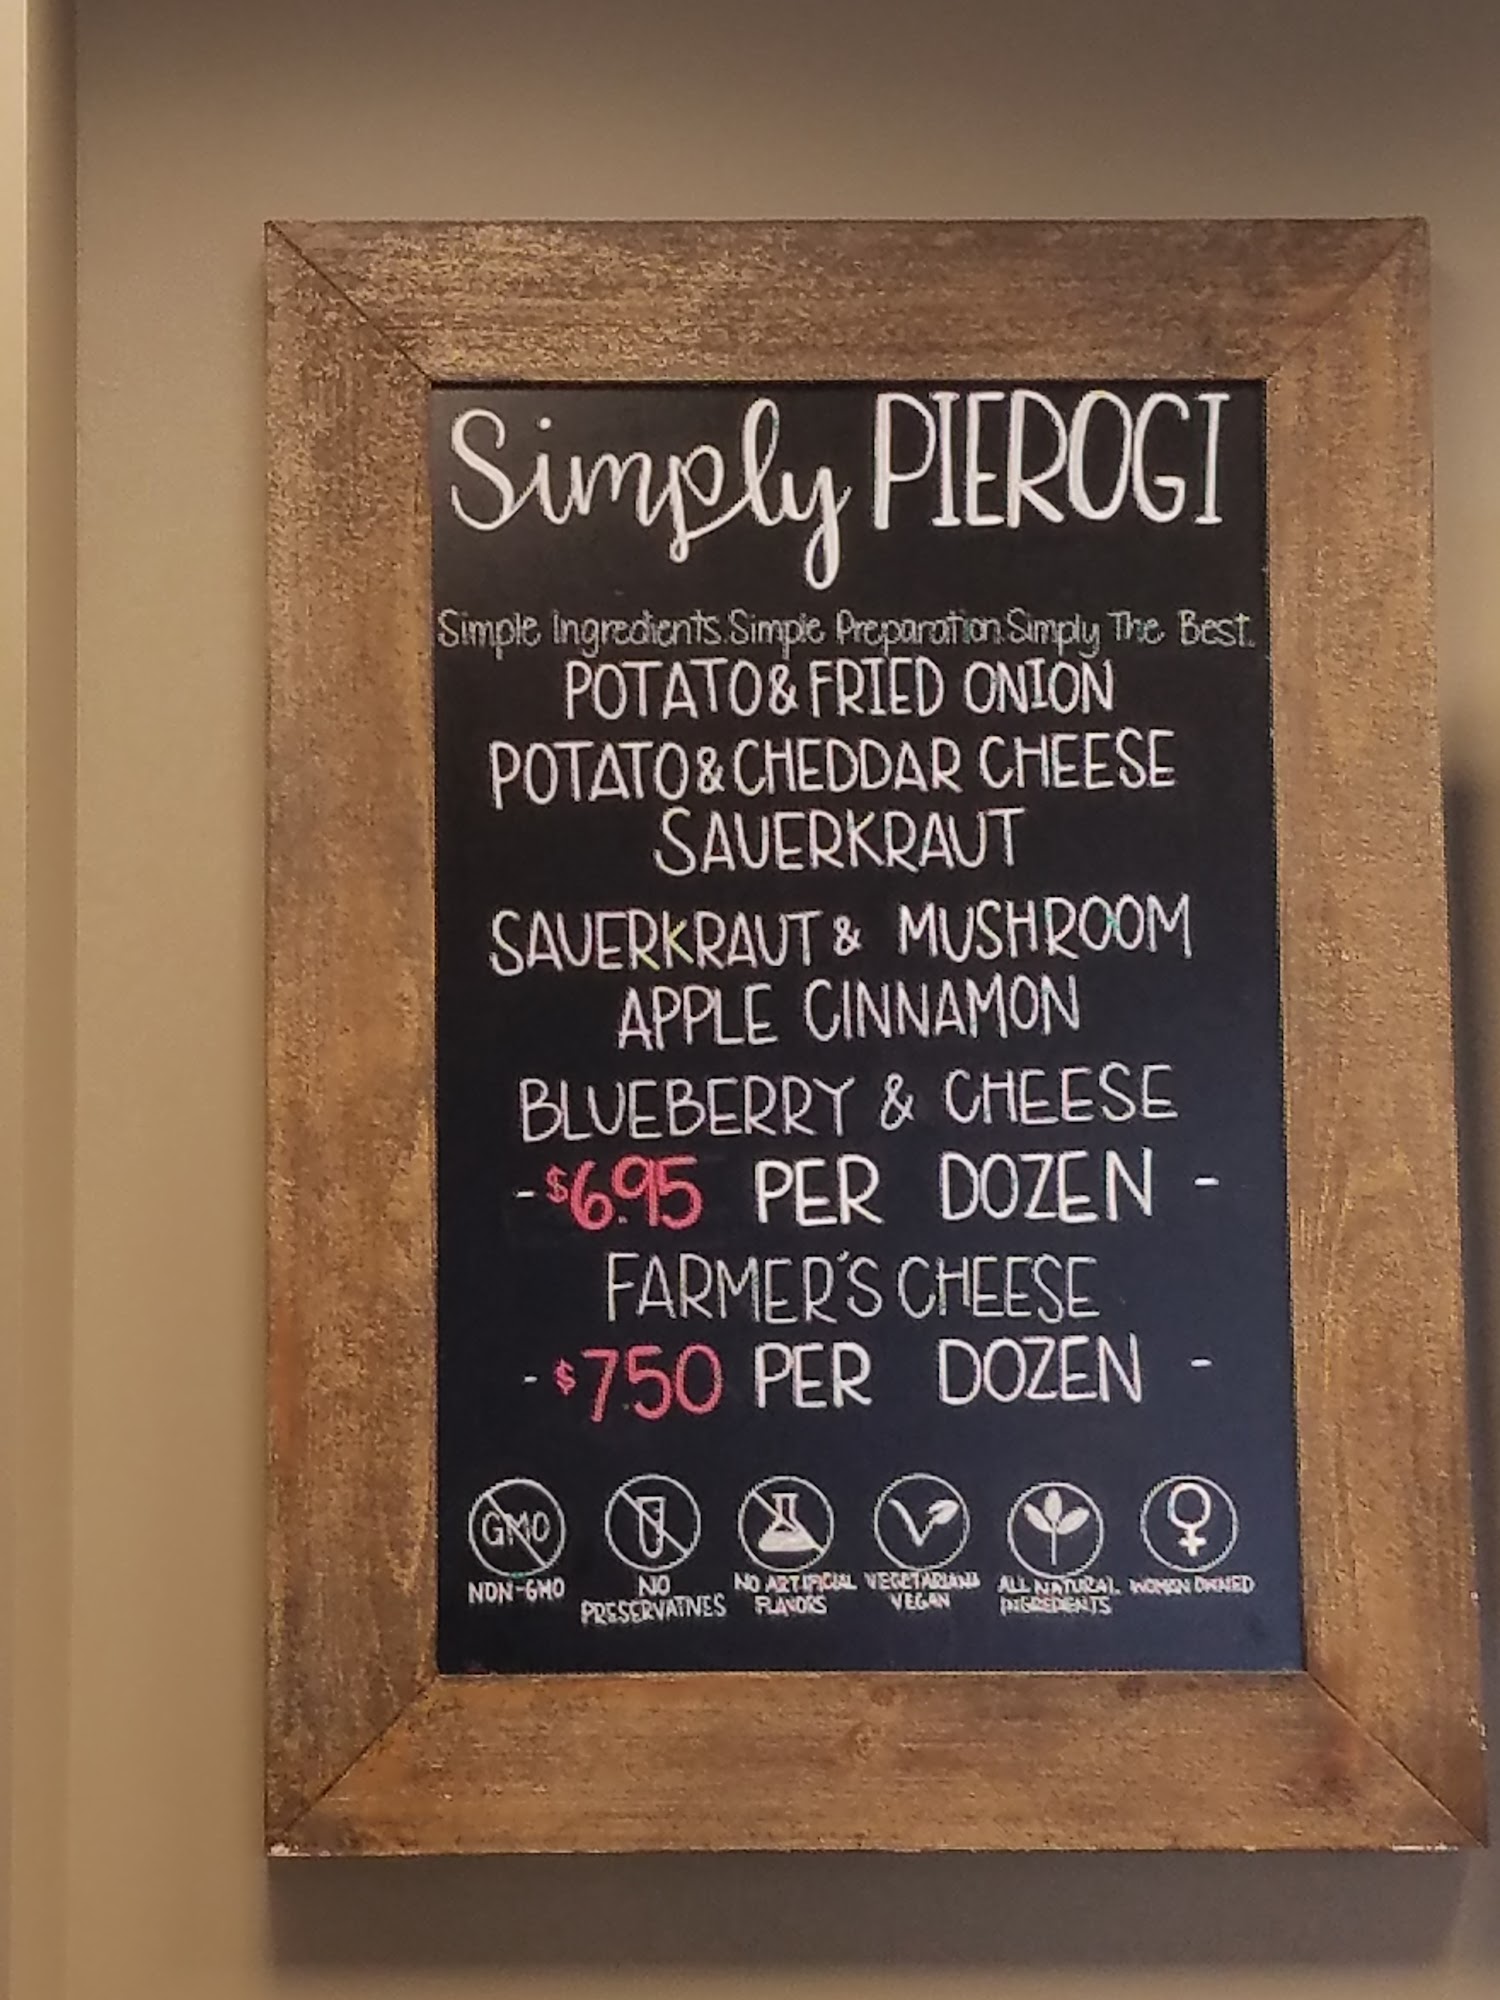 Simply PIEROGI
Simple Ingredients. Simple Preparation. Simply The Best.
POTATO & FRIED ONION
POTATO & CHEDDAR CHEESE
SAUERKRAUT
SAUERKRAUT & MUSHROOM
APPLE CINNAMON
BLUEBERRY & CHEESE
- $6.95 PER DOZEN -
FARMER'S CHEESE
- $7.50 PER DOZEN -
GMO
NON-GMO
NO
PRESERVATIVES
NO ARTIFICIAL
FLAVORS
VEGETARIAN &
VEGAN
ALL NATURAL
INGREDIENTS
WOMAN OWNED